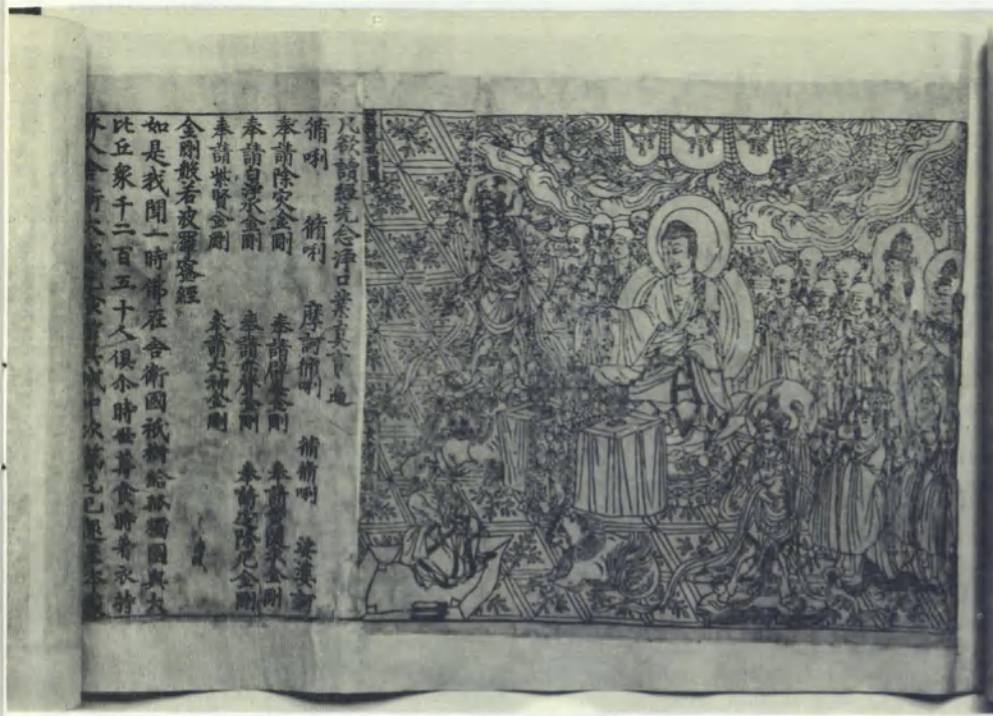 凡欲讀經先念淨口業真言一遍
脩唎 脩唎 摩訶脩唎 脩脩唎 娑婆訶
奉請除災金剛 奉請辟毒金剛 奉請金剛
奉請白淨水金剛 奉請赤聲金剛 奉請定除厄金剛
奉請紫賢金剛 奉請大神金剛
金剛般若波羅蜜經
如是我聞一時佛在舍衛國祇樹給孤獨園與大
比丘衆千二百五十人俱尒時世尊食時著衣持
入舍衛大城乞食於其城中次第乞已還至本